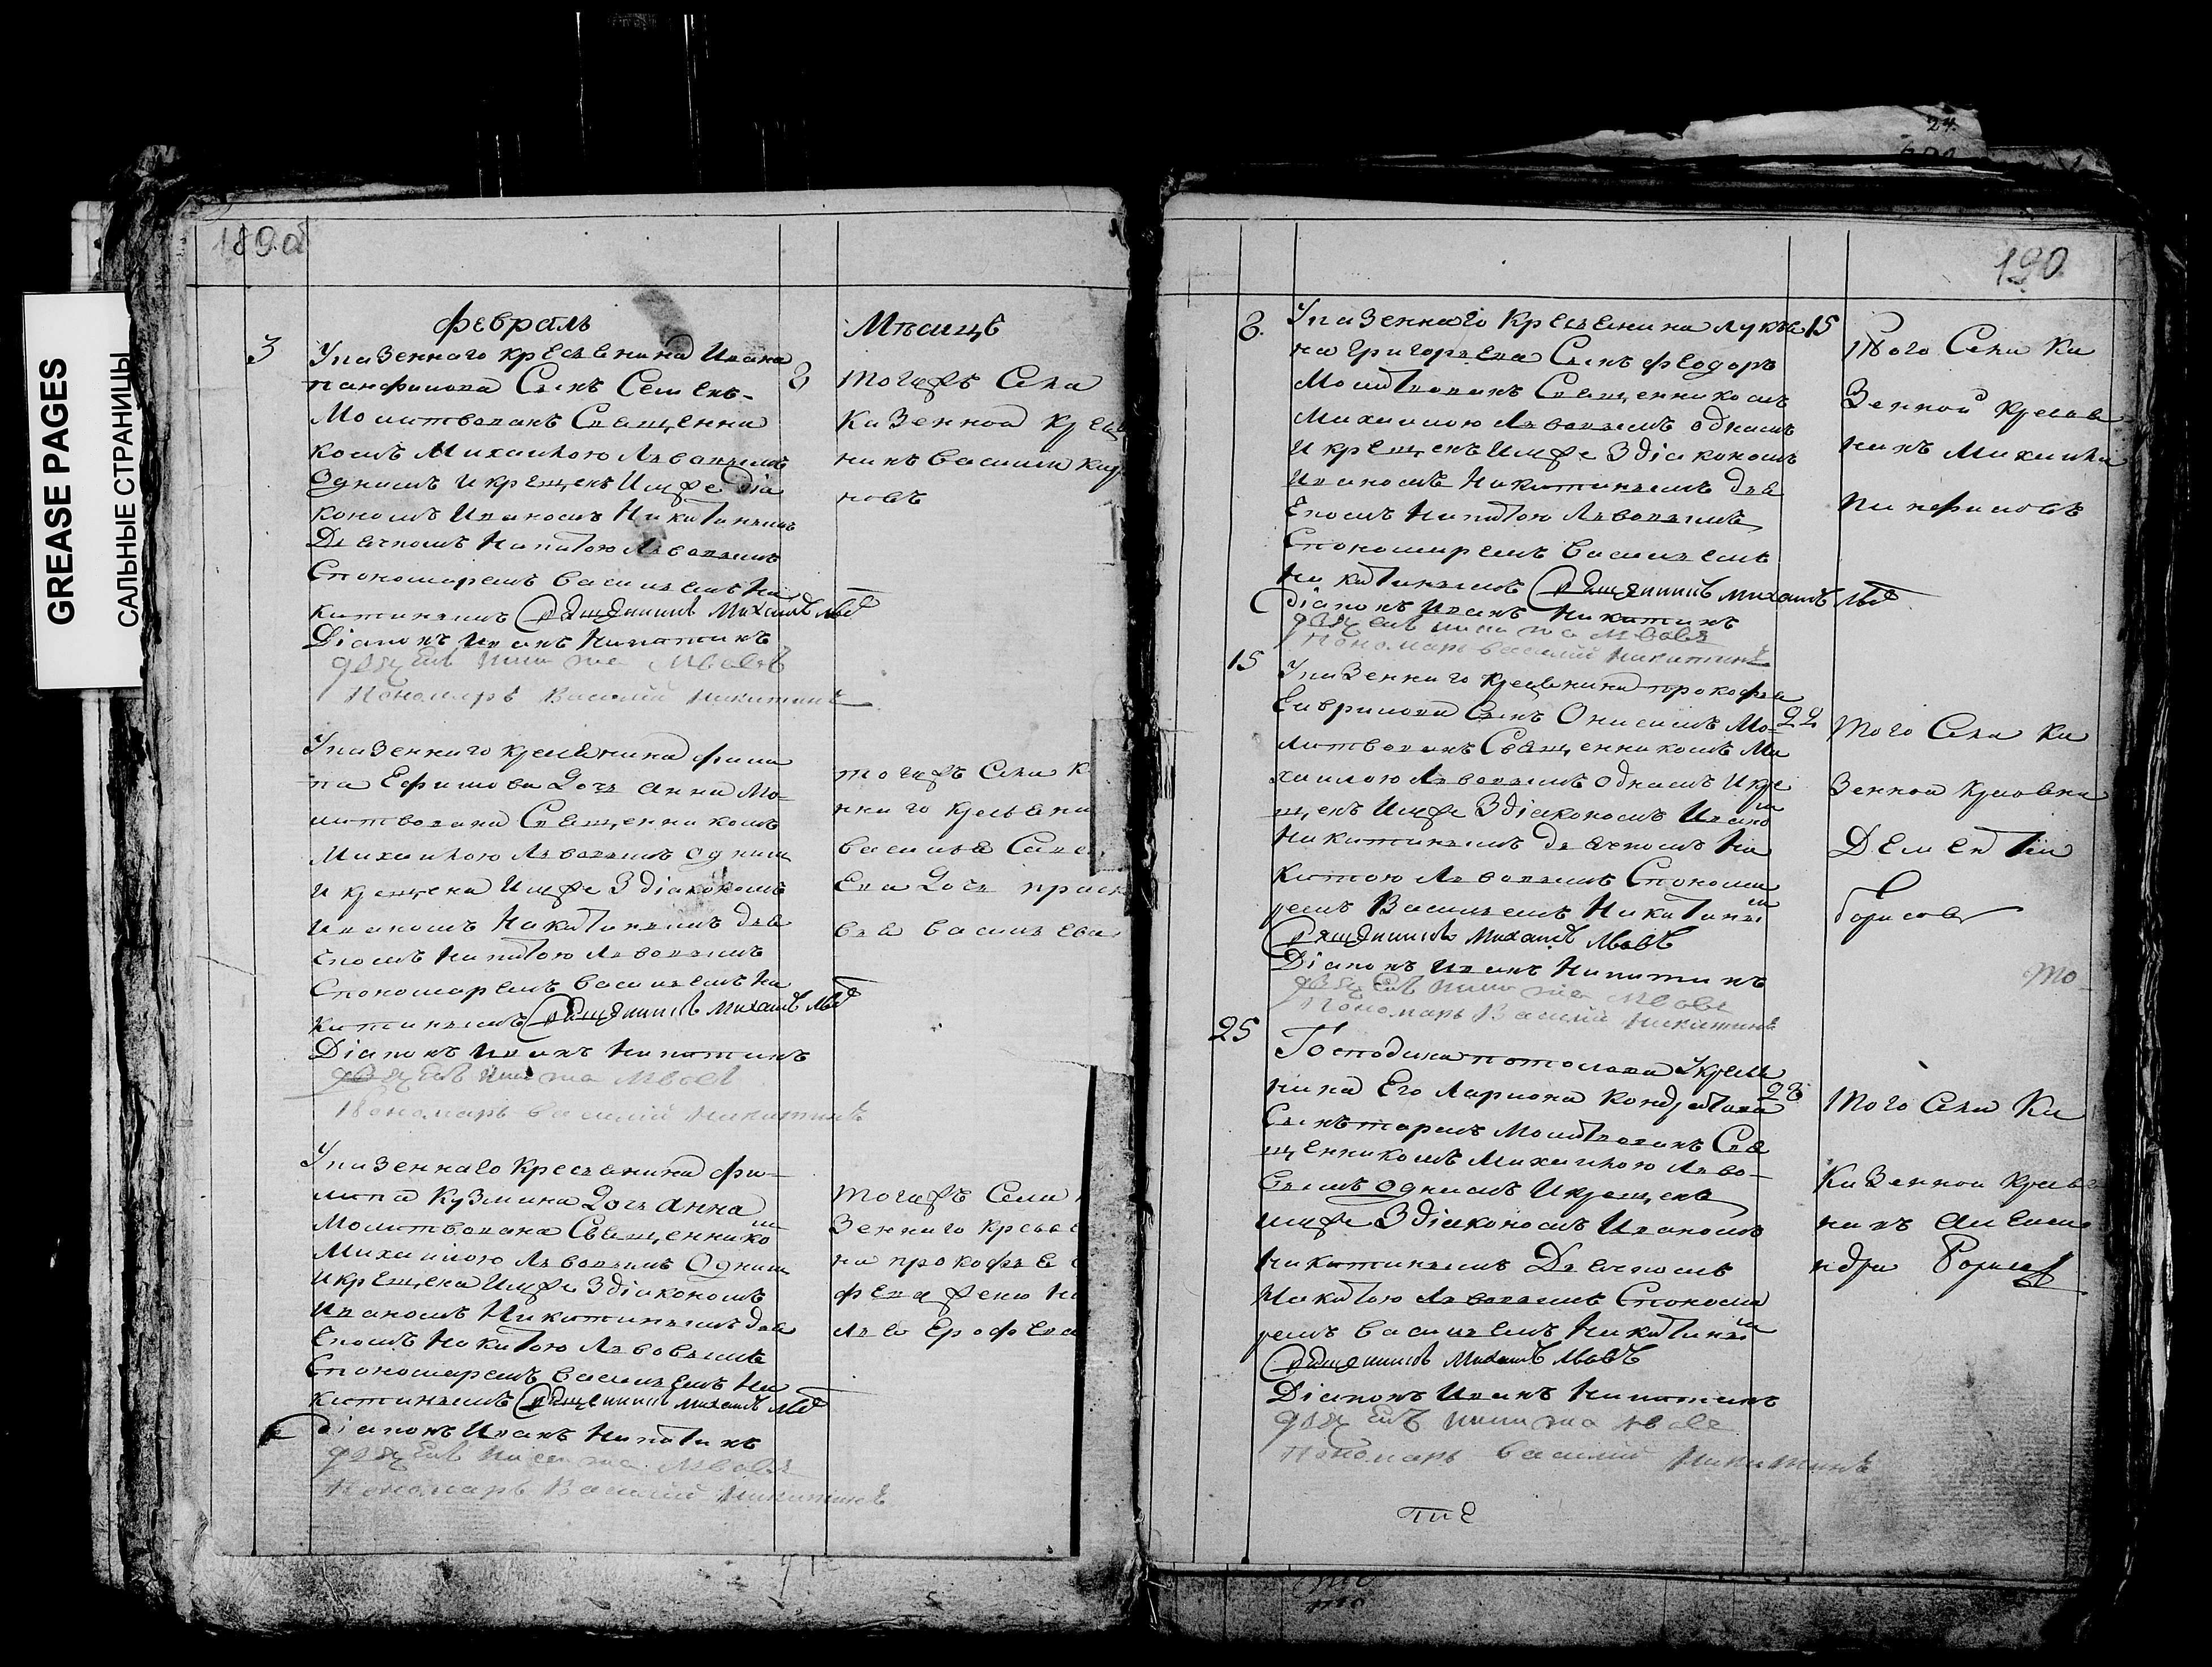 GREASE PAGES
САЛЬНЫЕ СТРАНИЦЫ
24.
189 об
февраль
Мѣсицъ
3
Указеннаго крестьянина Ивана
панфилова Сынъ Семенъ
Молитвованъ Священни
комъ Михаилою Львовымъ
Однимъ и крещенъ Имже діа
кономъ Иваномъ Никитинымъ
Дьячкомъ Никитою Львовымъ
Спономаремъ василиемъ Ни
китинымъ Священникъ Михаилъ Львовъ
Діаконъ Иванъ Никитинъ
дьячекъ Никита Львовъ
Пономарь Василий Никитинъ
3
тогожъ Села
Казенной крестья
нинъ василий
новъ
Указеннаго крестьянина фили
па Ефимова Дочь анна Мо
литвована Священникомъ
Михаилою Львовымъ Одним
и крещена Имже Здіакономъ
Иваномъ Никитинымъ дья
чкомъ Никитою Львовымъ
Спономаремъ василиемъ Ни
китинымъ Священникъ Михаилъ Львовъ
Діаконъ Иванъ Никитинъ
дьячекъ Никита Львовъ
Пономарь василий Никитинъ
тогожъ Села К
ннаго крестьяни
василья Саве
ева Дочь праск
вья васильева
Указеннаго крестьянина фи
липа Кузмина Дочь анна
Молитвована Священнико
Михаилою Львовымъ Одним
и крещена Имже Здіакономъ
Иваномъ Никитинымъ дья
чкомъ Никитою Львовымъ
Спономаремъ василиемъ Ни
китинымъ Священникъ Михаилъ Львовъ
діаконъ Иванъ Никитинъ
дьячекъ Никита Львовъ
Пономарь Василий Никитинъ
тогожъ Села
Зеннаго крестья
на прокофье
Ерофеева
190
8.
Указеннаго крестьянина луквя
на григорьева Сынъ феодоръ
Молитвованъ Священникомъ
Михаилою Львовымъ однимъ
и крещенъ Имже Здіакономъ
Иваномъ Никитинымъ дья
чкомъ Никитою Львовымъ
Спономаремъ василиемъ
Никитинымъ Священникъ Михаилъ Львовъ
діаконъ Иванъ Никитинъ
дьячекъ Никита Львовъ
Пономарь василий Никитинъ
15
Того Села Ка
Зенной крестья
нинъ Михаила
панфиловъ
15
Указеннаго крестьянина прокофья
Гаврилова Сынъ Онисимъ Мо
литвованъ Священникомъ Ми
хаилою Львовымъ однимъ и кре
щенъ Имже Здіакономъ Ивано
Никитинымъ дьячкомъ Ни
китою Львовымъ Спонома
ремъ Василиемъ Никитины
Священникъ Михаилъ Львовъ
Діаконъ Иванъ Никитинъ
дьячекъ Никита Львовъ
Пономарь Василий Никитинъ
22
того Села Ка
Зенной крестьяни
Дементій
борисовъ
то
25
Господина потолова Укрестья
нина Его лариона Кондратова
Сынъ тарасъ Молитвованъ Свя
щенникомъ Михаилою Льво
вымъ однимъ и крещенъ
имже Здіакономъ Иваномъ
Никитинымъ Дьячкомъ
Никитою Львовымъ Спонома
ремъ василиемъ Никитины
Священникъ Михаилъ Львовъ
Діаконъ Иванъ Никитинъ
дьячекъ Никита Львовъ
Пономарь василий Никитинъ
28
того Села Ка
Казенной крестья
нинъ Алекса
ндра